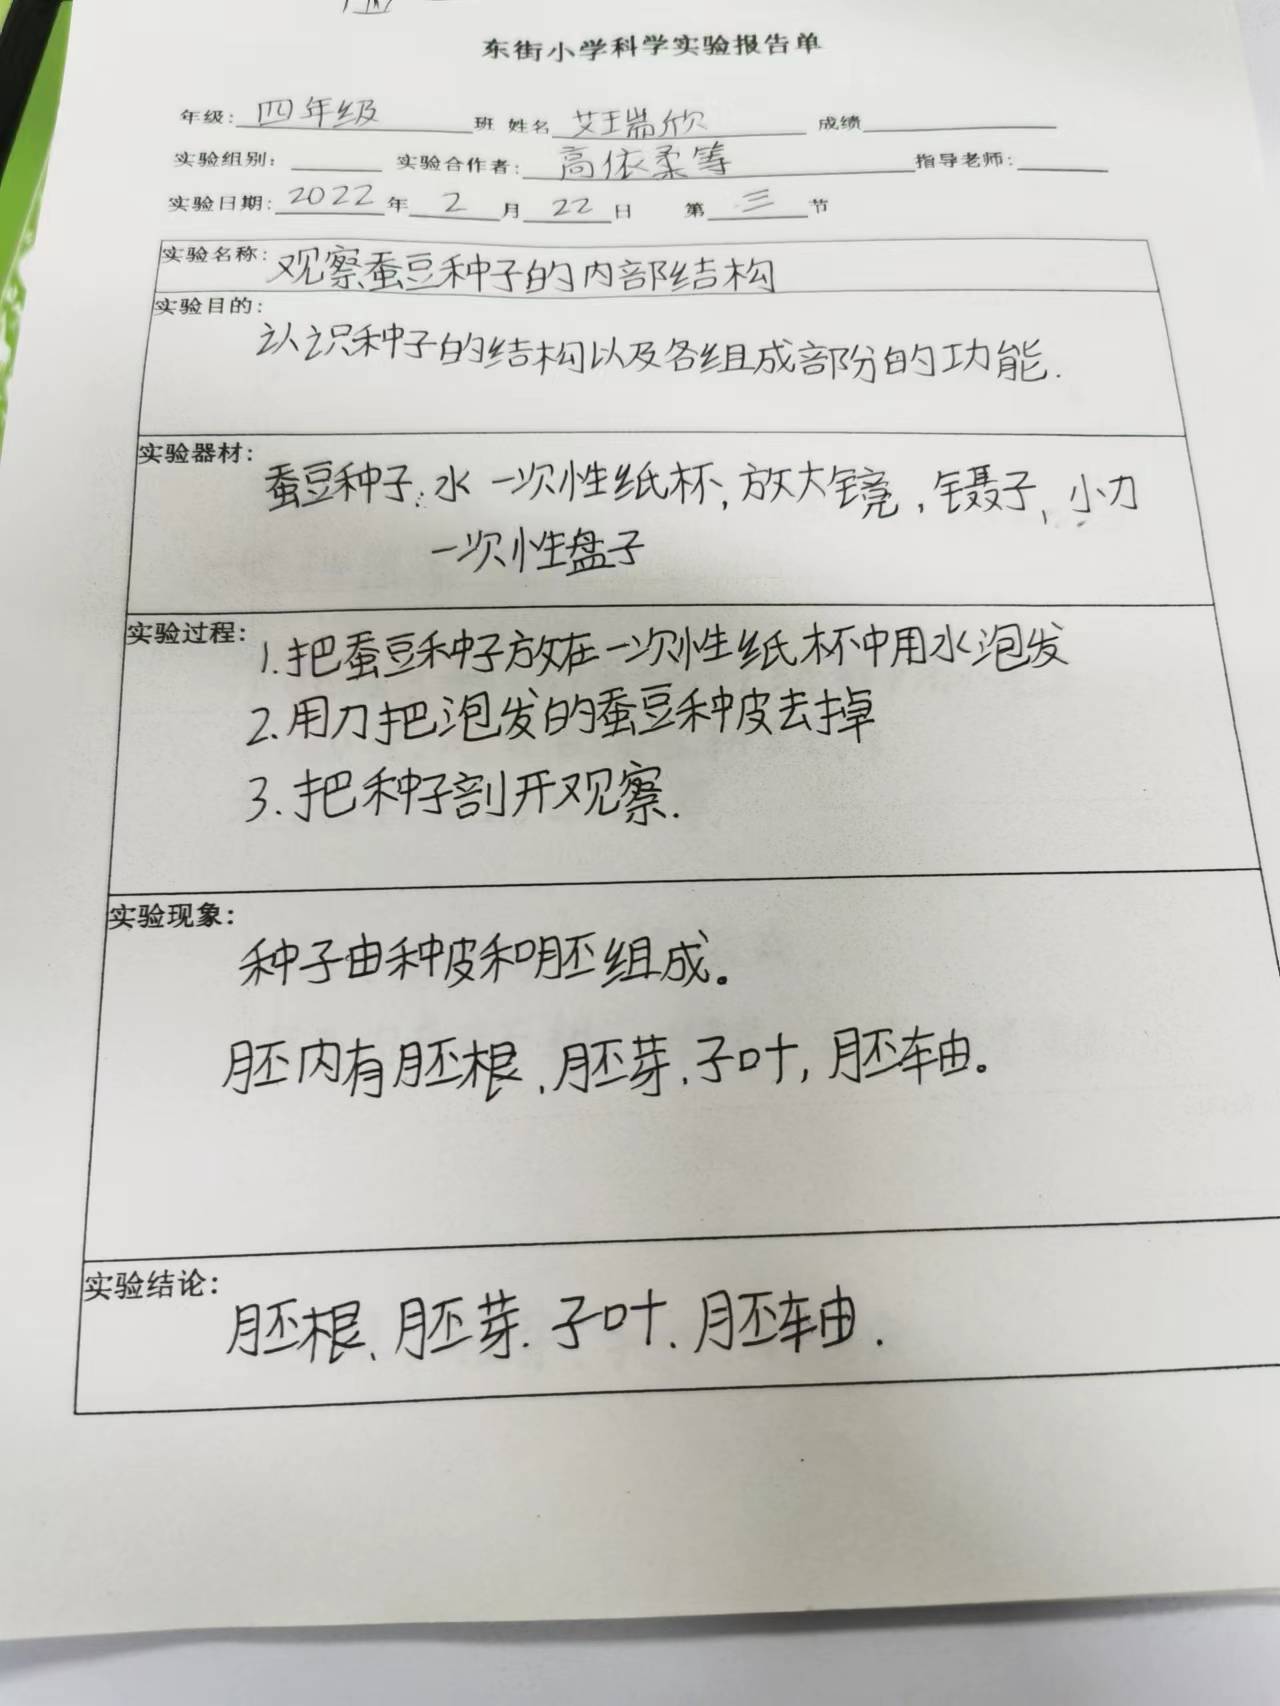 东街小学科学实验报告单
年级：四年级 班 姓名 艾瑞欣 成绩
实验组别： 实验合作者：高依柔等 指导老师：
实验日期：2022年 2 月 22 日 第 三 节
实验名称：观察蚕豆种子的内部结构
实验目的：
认识种子的结构以及各组成部分的功能.
实验器材：
蚕豆种子、水 一次性纸杯, 放大镜, 镊子, 小刀
一次性盘子
实验过程：1.把蚕豆种子放在一次性纸杯中用水泡发
2.用刀把泡发的蚕豆种皮去掉
3.把种子剖开观察.
实验现象：
种子由种皮和胚组成。
胚内有胚根、胚芽、子叶, 胚轴。
实验结论：
胚根、胚芽. 子叶、胚轴.